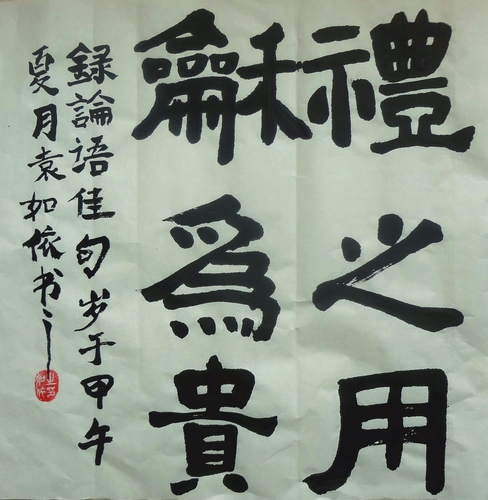 禮之用
龢為貴
録論語佳句岁于甲午
夏月袁如依书之